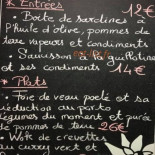 * Entrées 12€
• Boîte de sardines à
l'huile d'olive, pommes de
terre vapeurs et condiments
• Saucisson à la guillotine
et ses condiments 14€
* Plats
• Foie de veau poêlé et sa
réduction au porto
légumes du moment et purée
de pommes de terre 26€
• Wok de crevettes
au curry vert et